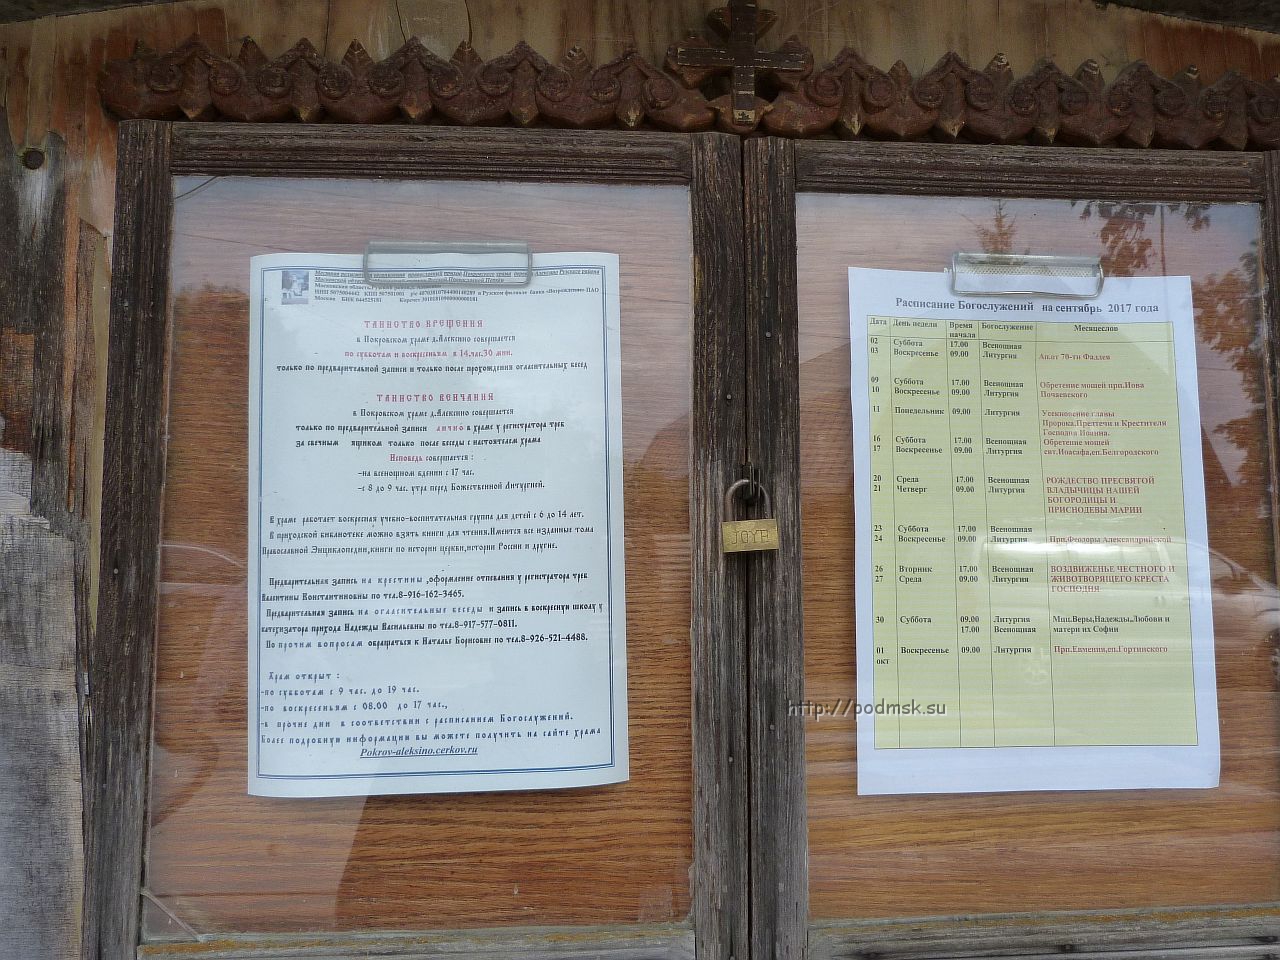 Местная религиозная организация православный приход Покровского храма деревни Алексино Рузского района
Московской области
Московская область, Рузский район, д. Алексино
ИНН 5075004442 КПП 507501001 р/с 40703810704400140289 в Рузском филиале банка «Возрождение» ПАО
Москва БИК 044525181 Кор.счет 30101810900000000181
ТАИНСТВО КРЕЩЕНИЯ
в Покровском храме д.Алексино совершается
по субботам и воскресеньям в 14.час.30 мин.
только по предварительной записи и только после прохождения огласительных бесед
ТАИНСТВО ВЕНЧАНИЯ
в Покровском храме д.Алексино совершается
только по предварительной записи лично в храме у регистратора треб
за свечным ящиком только после беседы с настоятелем храма
Исповедь совершается :
-на всенощном бдении с 17 час.
-с 8 до 9 час. утра перед Божественной Литургией.
В храме работает воскресная учебно-воспитательная группа для детей с 6 до 14 лет.
В приходской библиотеке можно взять книги для чтения.Имеется все изданные тома
Православной Энциклопедии,книги по истории церкви,истории России и другие.
Предварительная запись на крестины ,оформление отпевания у регистратора треб
Валентины Константиновны по тел.8-916-162-3465.
Предварительная запись на огласительные беседы и запись в воскресную школу у
катехизатора прихода Надежды Васильевны по тел.8-917-577-0811.
По прочим вопросам обращаться к Наталье Борисовне по тел.8-926-521-4488.
Храм открыт :
-по субботам с 9 час. до 19 час.
-по воскресеньям с 08.00 до 17 час.,
-в прочие дни в соответствии с расписанием Богослужений.
Более подробную информации вы можете получить на сайте храма
Pokrov-aleksino.cerkov.ru
JOYB
Расписание Богослужений на сентябрь 2017 года
Дата День недели Время начала Богослужение Месяцеслов
02 Суббота 17.00 Всенощная
03 Воскресенье 09.00 Литургия Ап.от 70-ти Фаддея
09 Суббота 17.00 Всенощная Обретение мощей прп.Иова
10 Воскресенье 09.00 Литургия Почаевского
11 Понедельник 09.00 Литургия Усекновение главы
Пророка,Предтечи и Крестителя
Господня Иоанна.
16 Суббота 17.00 Всенощная Обретение мощей
17 Воскресенье 09.00 Литургия свт.Иоасафа,еп.Белгородского
20 Среда 17.00 Всенощная РОЖДЕСТВО ПРЕСВЯТОЙ
21 Четверг 09.00 Литургия ВЛАДЫЧИЦЫ НАШЕЙ
БОГОРОДИЦЫ И
ПРИСНОДЕВЫ МАРИИ
23 Суббота 17.00 Всенощная
24 Воскресенье 09.00 Литургия Прп.Феодоры Александрийской
26 Вторник 17.00 Всенощная ВОЗДВИЖЕНЬЕ ЧЕСТНОГО И
27 Среда 09.00 Литургия ЖИВОТВОРЯЩЕГО КРЕСТА
ГОСПОДНЯ
30 Суббота 09.00 Литургия Мцц.Веры,Надежды,Любови и
17.00 Всенощная матери их Софии
01 Воскресенье 09.00 Литургия Прп.Евмения,еп.Гортинского
окт
http://podmsk.su